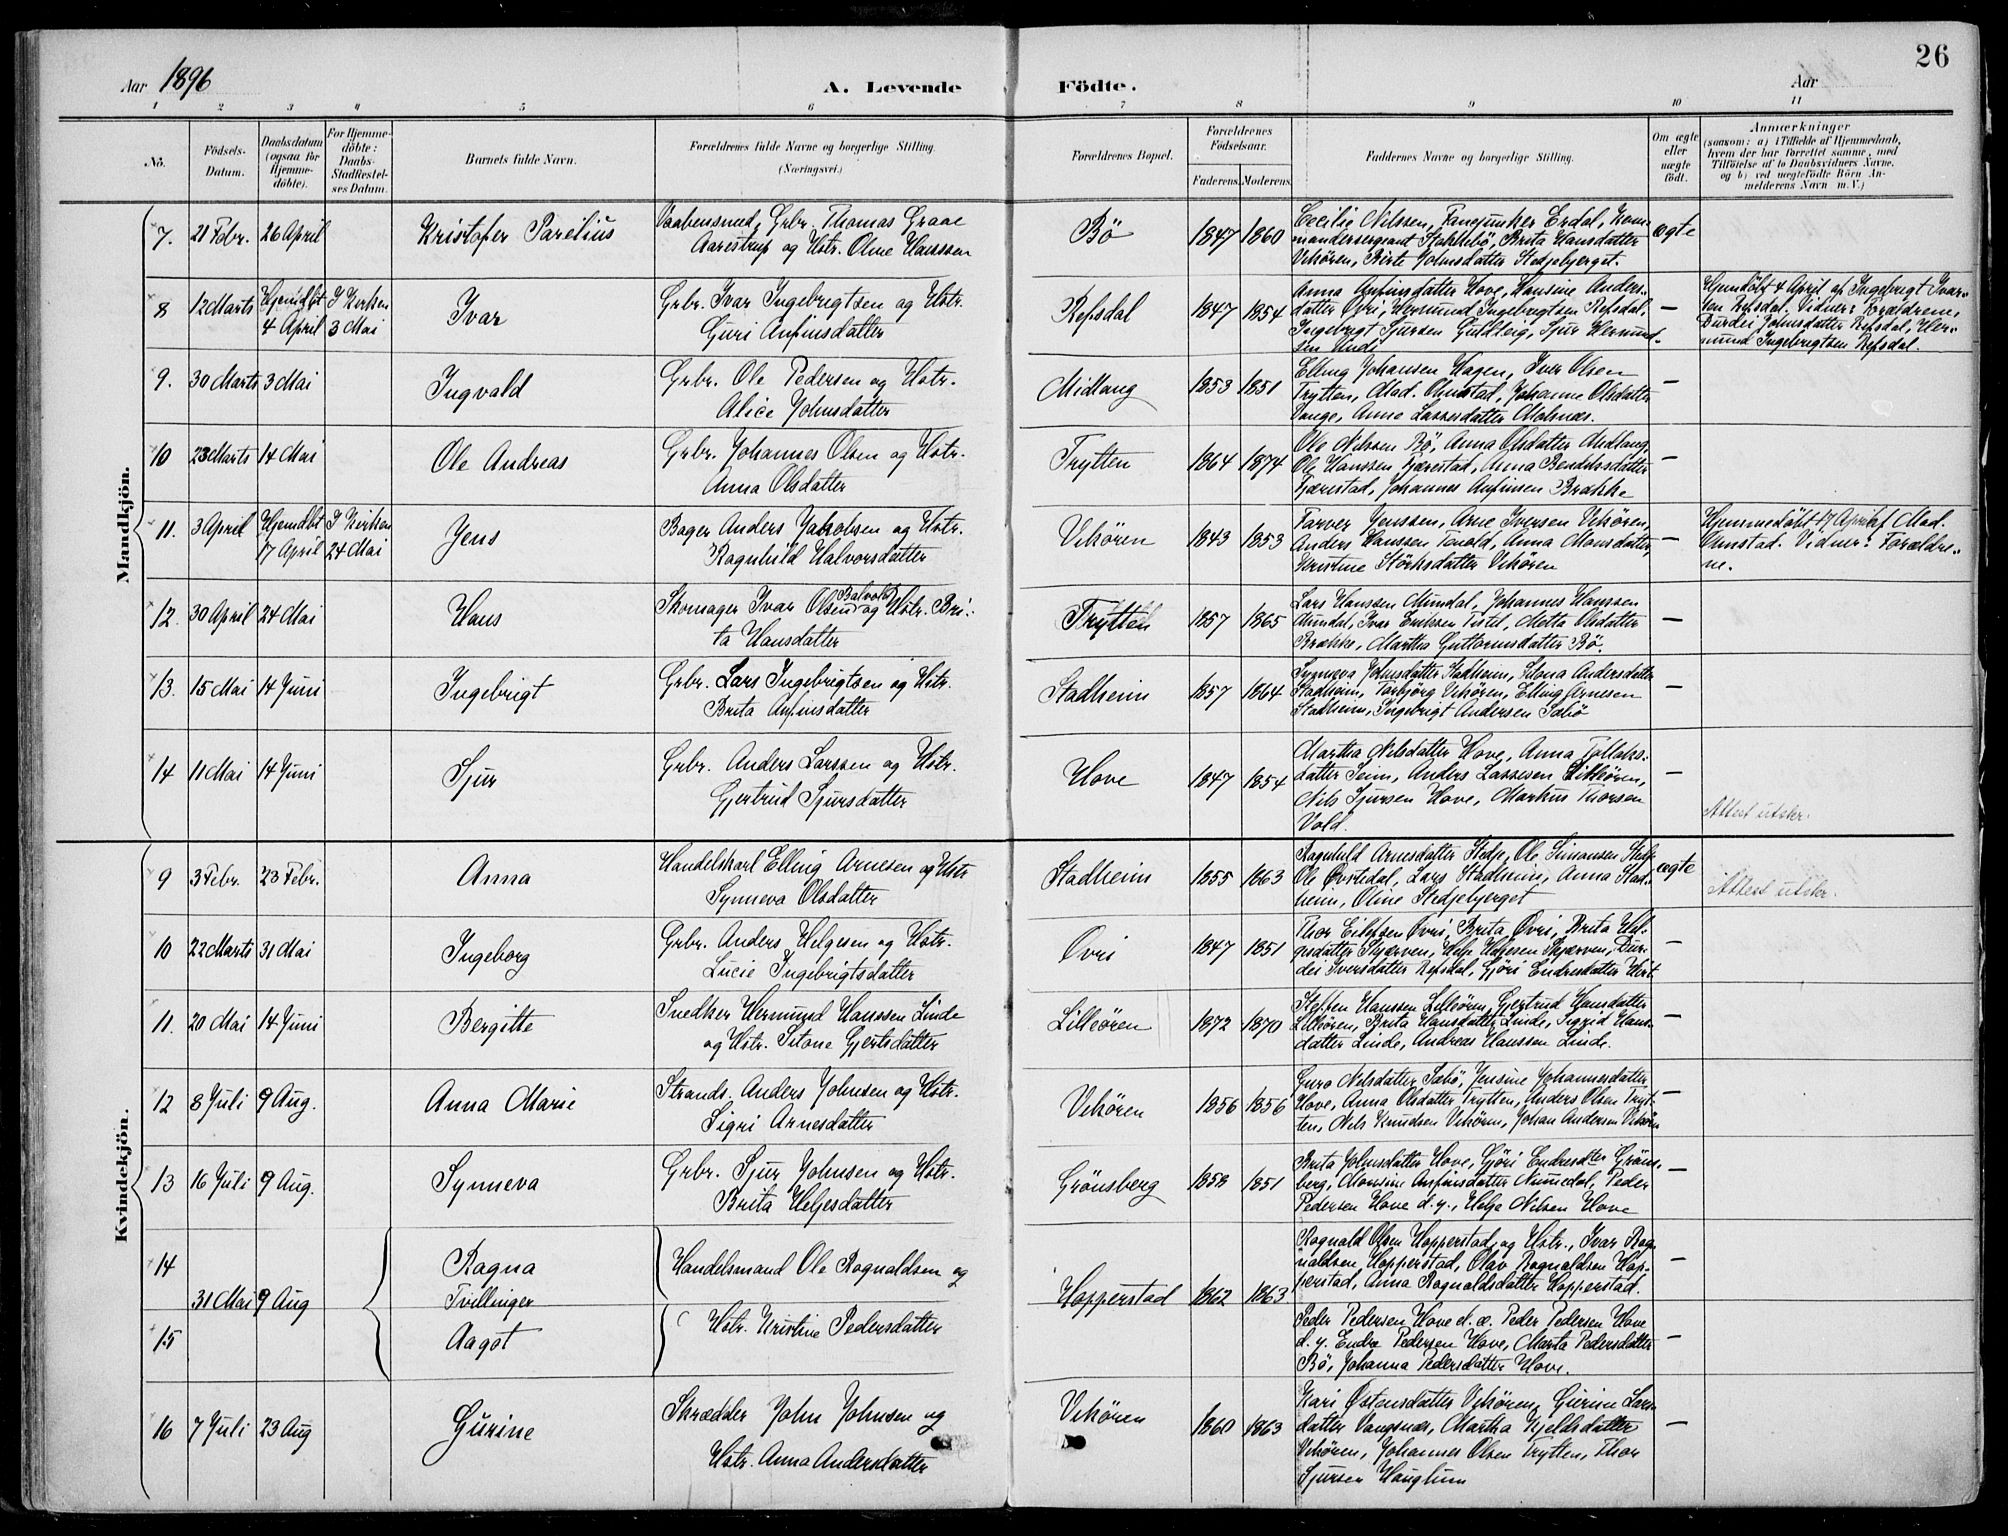 26
Aar 1896
A. Levende
Födte.
Aar
1 2 3 4 5 6 7 8 9 10 11
No.
Födsels-
Datum.
Daabsdatum
(ogsaa for
Hjemme-
döbte).
For Hjemme-
döbte:
Daabs-
Stadfæstel-
ses Datum.
Barnets fulde Navn.
Forældrenes fulde Navne og borgerlige Stilling.
(Næringsvei.)
Forældrenes Bopæl.
Forældrenes
Födselsaar.
Faderens. Moderens.
Faddernes Navne og borgerlige Stilling.
Om ægte
eller
uægte
født.
Anmærkninger
(saasom: a) i Tilfælde af Hjemmedaab,
hvem der har forrettet samme, med
Tilföielse af to Daabsvidners Navne.
og b) ved uægtefödte Börn An-
melderens Navn m. V.)
Mandkjön.
7. 21 Febr. 26 April
Kristofer Parelius
Vaabensmed, Grbr. Thomas Graae
Aarestrup og Hstr. Oline Hanssen
Bö
1847 1860
Cecilie Nilssen, Fanejunker Erdal, Kom-
mandersergeant Stokkebö, Brita Hansdatter
Vikören, Birte Johnsdatter Stedjebjerget.
ægte
8 12 Marts Hjemdöbt 4 April I Kirken 3 Mai
Ivar
Grbr. Ivar Ingebrigtsen og Hstr.
Guri Anfinsdatter
Refsdal
1847 1854
Anna Anfinsdatter Hove, Hansine Anders-
datter Övri, Hermund Ingebrigtsen Refsdal,
Ingebrigt Sjursen Guldteig, Sjur Hermund-
sen Linde
—
Hjemdöbt 4 April af Ingebrigt Ivar-
sen Refsdal. Vidner: Forældrene,
Durdei Johnsdatter Refsdal, Her-
mund Ingebrigtsen Refsdal.
9. 30 Marts 3 Mai
Ingvald
Grbr. Ole Pedersen og Hstr.
Alice Johnsdatter
Midlang
1853 1851
Elling Johansen Hagen, Iver Olsen
Trytten, Mad. Ohnstad, Johanne Olsdatter
Vange, Anne Lassesdatter Molsnæs.
—
10 23 Marts 14 Mai
Ole Andreas
Grbr. Johannes Olsen og Hstr.
Anna Olsdatter
Trytten
1864 1874
Ole Nilssen Bö, Anna Olsdatter Midlang,
Ole Hanssen Tjærestad, Anna Bendixsdatter
Tjærestad, Johannes Anfinsen Brække
—
11. 3 April Hjemdöbt 17 April I Kirken 24 Mai
Jens
Bager Anders Jakobsen og Hstr.
Ragnhild Halvorsdatter
Vikören
1843 1853
Farver Jenssen, Arne Iversen Vikören,
Anders Hanssen Tenold, Anna Monsdatter,
Kristine Störksdatter Vikören
—
Hjemmedöbt 17 April af Mad.
Ohnstad. Vidner: Forældre-
ne.
12. 30 April 24 Mai
Hans
Skomager Ivar Olsen Balvold og Hstr. Bri-
ta Hansdatter
Trytten
1857 1865
Lars Hanssen Mundal, Johannes Hanssen
Mundal, Ivar Eriksen Tistel, Metta Olsdatter
Brække, Martha Guttormsdatter Bö.
—
13. 15 Mai 14 Juni
Ingebrigt
Grbr. Lars Ingebrigtsen og Hstr.
Brita Anfinsdatter
Stadheim
1857 1864
Synneva Johnsdatter Stadheim, Sitona Andersdatter
Stadheim, Torbjörg Vikören, Elling Arnesen
Stadheim, Ingebrigt Andersen Sæbö
—
14 11 Mai 14 Juni
Sjur
Grbr. Anders Larssen og Hstr.
Gjertrud Sjursdatter
Hove
1847 1854
Martha Nilsdatter Hove, Anna Tollaks-
datter Seim, Anders Lassesen Lilleören,
Nils Sjursen Hove, Markus Thorsen
Vold.
—
Attest utskr.
Kvindekjön.
9 3 Febr. 23 Febr.
Anna
Handelskarl Elling Arnesen og Hstr
Synneva Olsdatter
Stadheim
1855 1863
Ragnhild Arnesdatter Stedje, Ole Simonsen Stedje
Ole Övstedal, Lars Stadheim, Anna Stad-
heim, Oline Stedjebjerget
ægte
Attest utskr.
10 22 Marts 31 Mai
Ingeborg
Grbr. Anders Helgesen og Hstr.
Lucie Ingebrigtsdatter
Övri
1847 1851
Thor Eilefsen Övri, Brita Övri, Brita Hel-
gesdatter Skjærven, Helje Heljesen Skjærven, Dur-
dei Iversdatter Refsdal, Gjöri Endresdatter
—
11. 20 Mai 14 Juni
Bergitte
Snedker Hermund Hanssen Linde
og Hstr. Sitone Gjertsdatter
Lilleören
1872 1870
Steffen Hanssen Lilleören, Gjertrud Hansdatter
Lilleören, Brita Hansdatter Linde, Sigrid Hans-
datter Linde, Andreas Hanssen Linde.
—
12 8 Juli 9 Aug.
Anna Marie
Strands. Anders Johnsen og Hstr.
Sigri Arnesdatter
Vikören
1856 1856
Guro Nilsdatter Sæbö, Jensine Johannesdatter
Hove, Anna Olsdatter Trytten, Anders Olsen Tryt-
ten, Nels Knudsen Vikören, Johan Andersen Vikören
—
13 16 Juli 9 Aug.
Synneva
Grbr. Sjur Johnsen og Hstr.
Brita Heljesdatter
Grönsberg
1858 1851
Brita Johnsdatter Hove, Gjöri Endresdter Gröns-
berg, Monsine Anfinsdatter Nummedal, Peder
Pedersen Hove d. y., Helje Nilsen Hove
—
14
Ragna
Handelsmand Ole Rognaldsen og
Rognald Olsen Hopperstad, og Hstr., Ivar Rog-
naldsen Hopperstad, Olav Rognaldsen Hop-
perstad, Anna Rognaldsdatter Hopperstad.
—
31 Mai 9 Aug
Tvillinger
Hopperstad
1862 1863
15
Aagot
Hstr. Kristine Pedersdatter
Peder Pedersen Hove d. æ. Peder Pedersen Hove
d. y. Endre Pedersen Hove, Marta Pedersdatter
Bö, Johanna Pedersdatter Hove.
—
16 7 Juli 23 Aug
Gurine
Skrædder John Johnsen og
Hstr. Anna Andersdatter
Vikören
1860 1863
Kari Östensdatter Vikören, Gurine Lars-
datter Vangsnæs, Martha Kjeldsdatter
Vikören, Johannes Olsen Trytten, Thor
Sjursen Hauglum
—